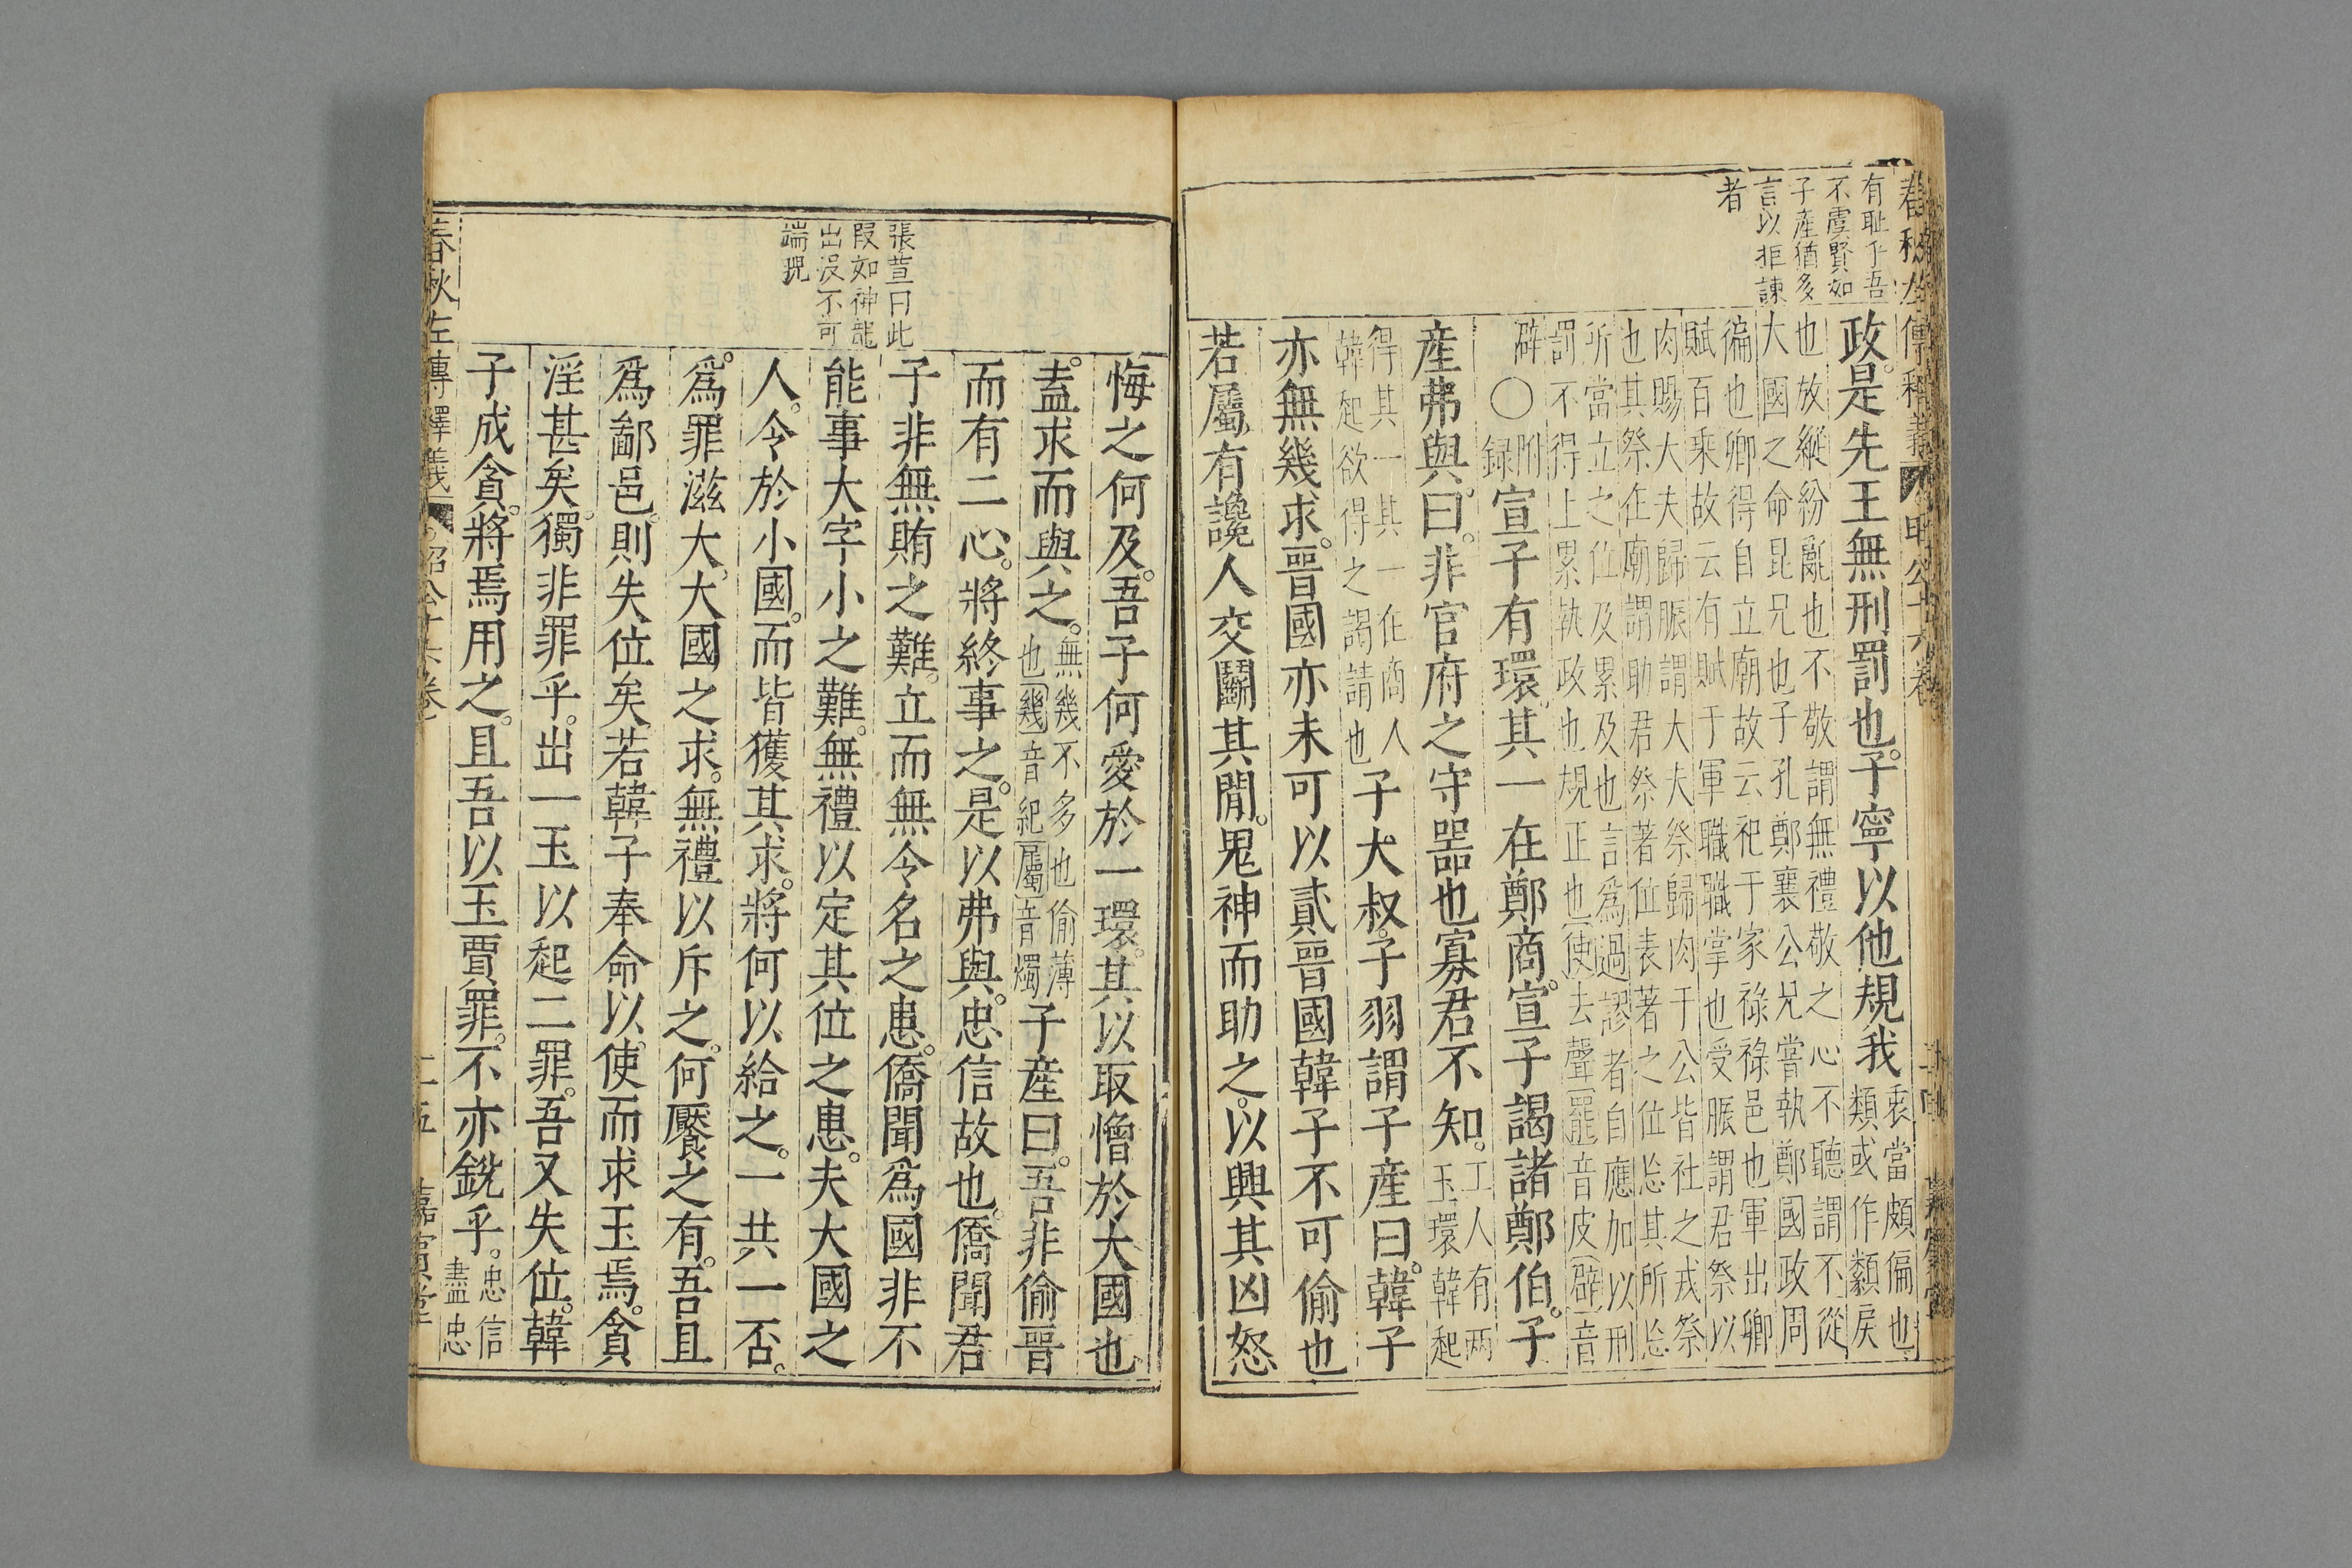 春秋左傳釋義 昭公十六卷
有耻乎吾
不虞賢如
子產猶多
言以拒諫
者
政。是先王無刑罰也。子寧以他規我衷當頗偏也
類或作纇戾
也放縱紛亂也不敬謂無禮敬之心不聽謂不從
大國之命昆兄也子孔鄭襄公兄嘗執鄭國政周
徧也卿得自立廟故云祀于家祿祿邑也軍出卿
賦百乘故云有賦于軍職職掌也受脤謂君祭以
肉賜大夫歸脤謂大夫祭歸肉于公皆社之戎祭
也其祭在廟謂助君祭著位表著之位㤀其所㤀
所當立之位及累及也言為過謬者自應加以刑
罰不得上累執政也規正也使去聲罷音皮辟音
辟〇附録宣子有環。其一在鄭商。宣子謁諸鄭伯。子
產弗與。曰。非官府之守噐也寡君不知。工人有两
玉環韓起
得其一其一在商人
韓起欲得之謁請也子大叔。子羽謂子產曰。韓子
亦無幾求。晉國亦未可以貳晉國韓子不可偷也
若屬有讒人交鬬其間。鬼神而助之。以興其凶怒
張萱曰此
叚如神龍
出沒不可
端覭
悔之何及。吾子何愛於一環。其以取憎於大國也
盍求而與之。無幾不多也偷薄
也幾音紀屬音燭子產曰。吾非偷晉
而有二心。將終事之。是以弗與。忠信故也。僑聞君
子非無賄之難。立而無令名之患。僑聞爲國非不
能事大字小之難。無禮以定其位之患。夫大國之
人。令於小國。而皆獲其求。將何以給之。一共一否。
爲罪滋大。大國之求。無禮以斥之。何饜之有。吾且
爲鄙邑。則失位矣若韓子奉命以使而求玉焉。貪
淫甚矣。獨非罪乎。出一玉以起二罪。吾又失位。韓
子成貪。將焉用之。且吾以玉賈罪。不亦銳乎。忠信
盡忠
春秋左傳釋義 昭公十六卷 二十五 嘉賓堂